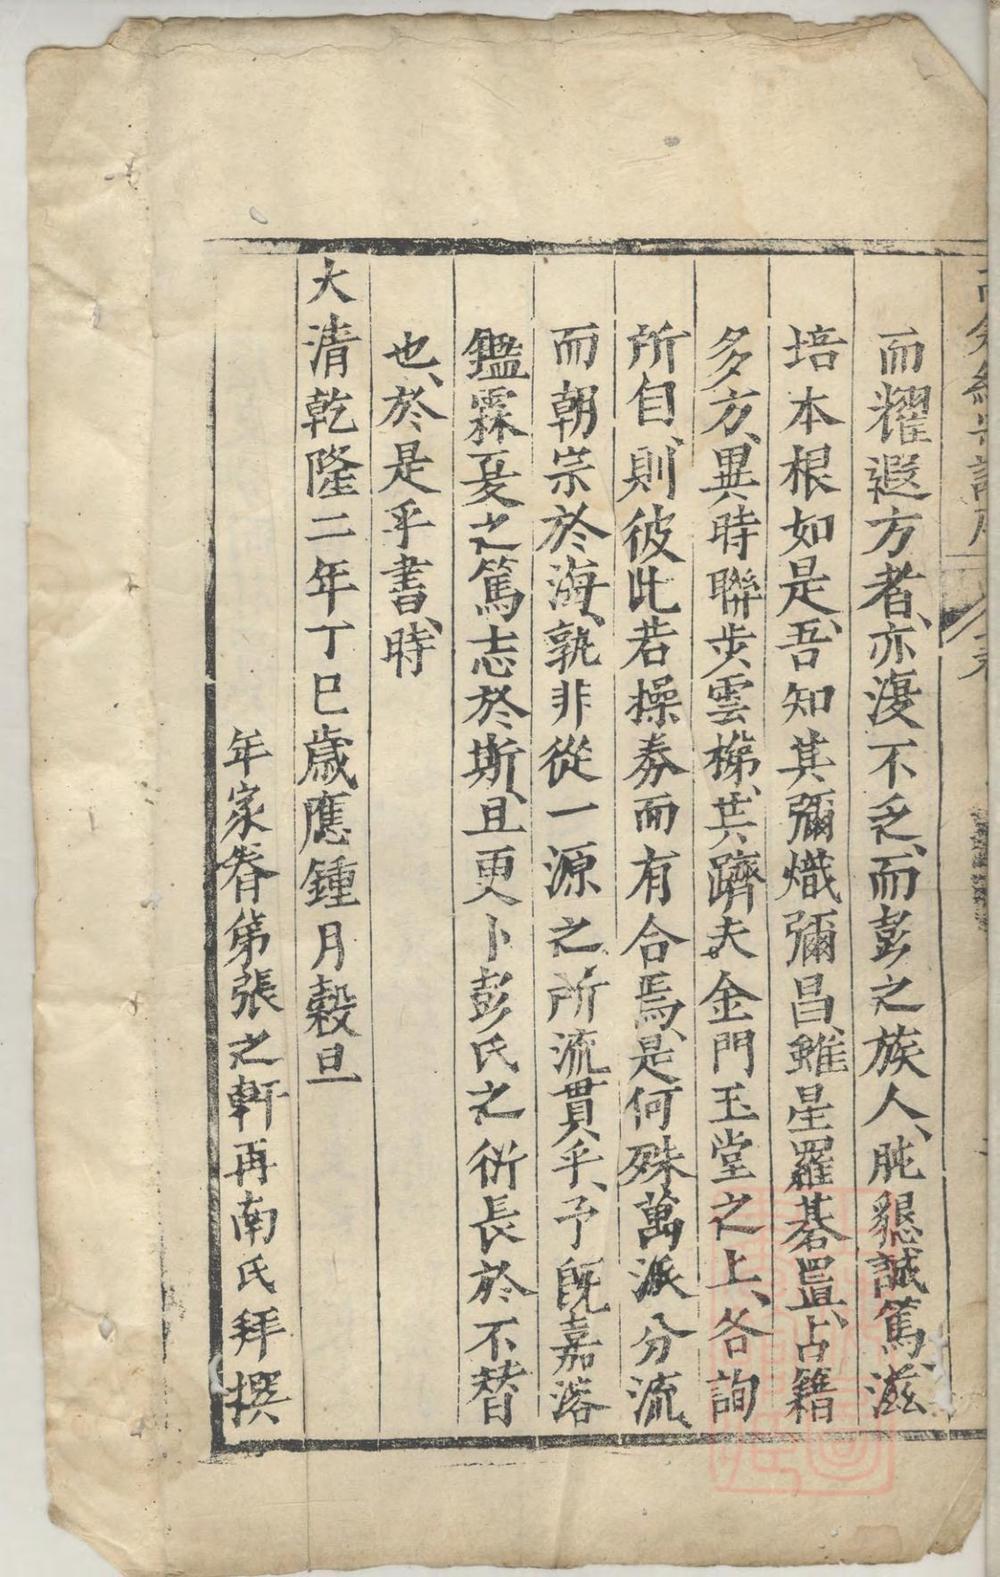 而耀遐方者、亦漫不乏、而彭之族人、肫懇誠篤、滋
培本根如是、吾知其彌熾彌昌、雖星羅碁置、占籍
多方、異時聯步雲梯、共躋夫金門玉堂之上、各詢
所自、則彼此若操券而有合焉、是何殊萬派分流、
而朝宗於海、孰非從一源之所流貫乎、予既嘉
鑑霖憂之篤志於斯、且更卜彭氏之衍長於不替
也、於是乎書、時
大清乾隆二年丁巳歲應鍾月穀旦
年家眷弟張之軒再南氏拜撰